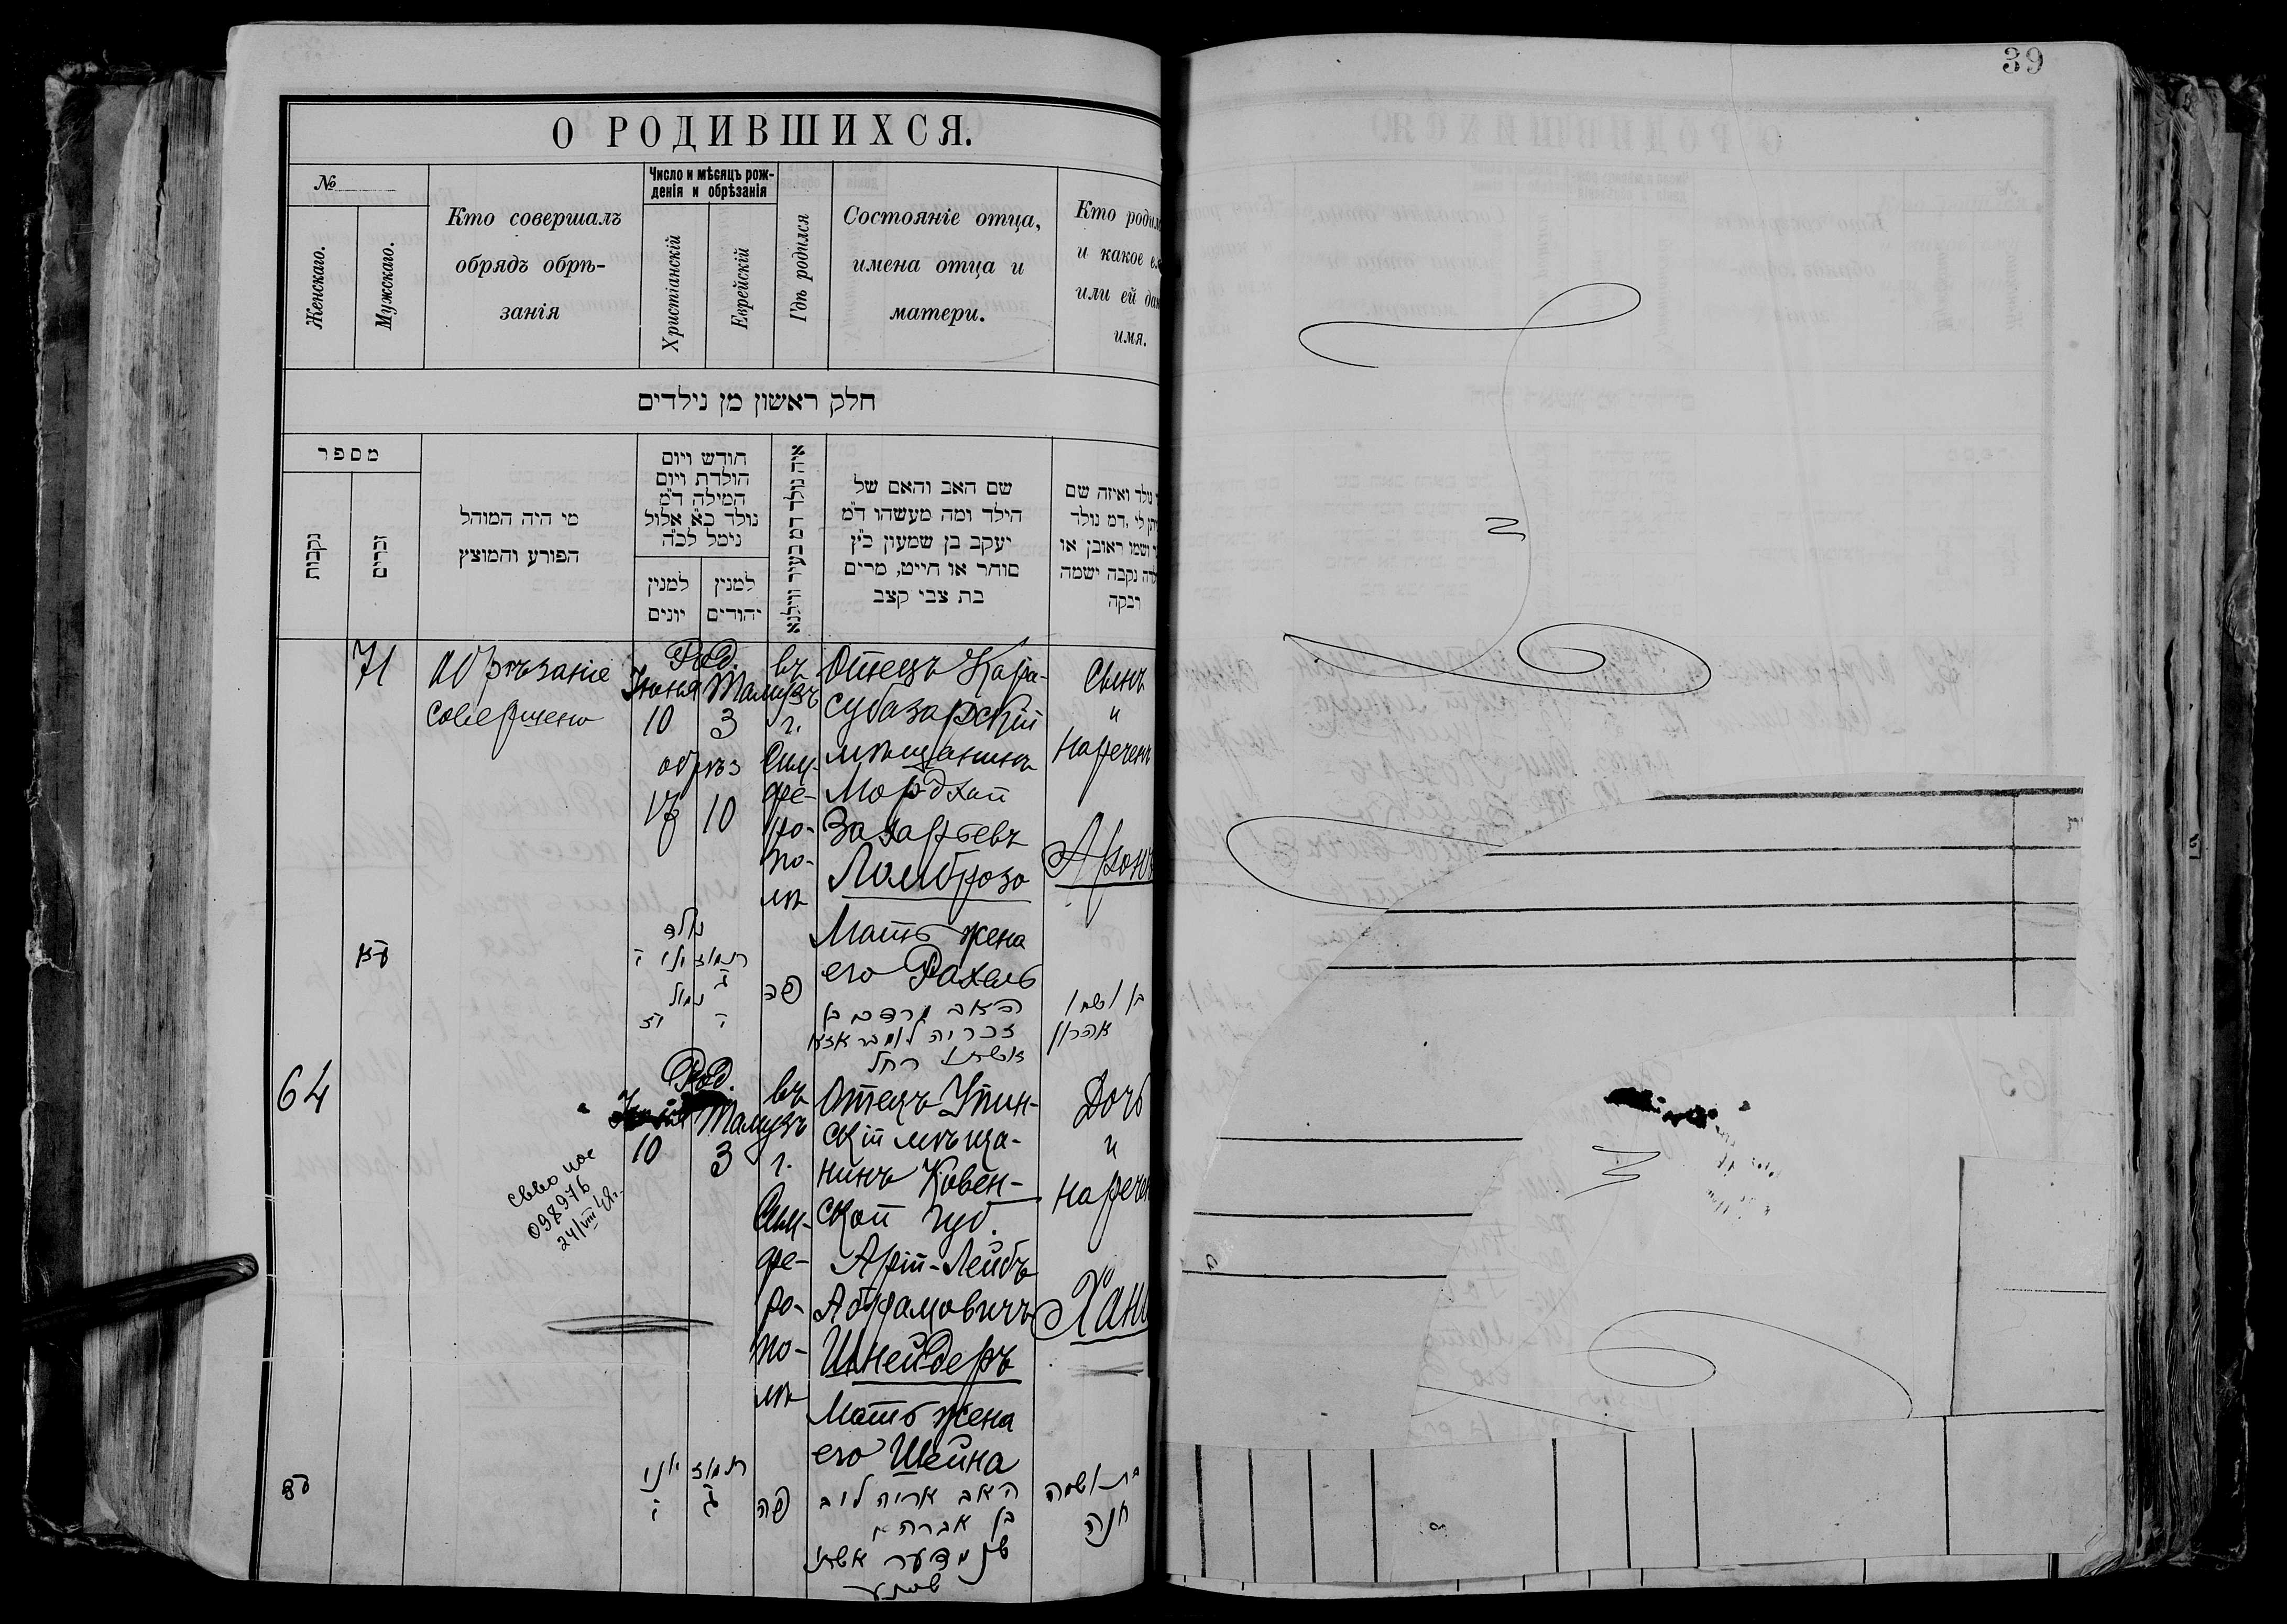 39
О РОДИВШИХСЯ.
№
Женскаго.
Мужскаго.
Кто совершалъ
обрядъ обрѣ-
занія
Число и мѣсяцъ рож-
денія и обрѣзанія
Христіанскій
Еврейскій
Гдѣ родился
Состояніе отца,
имена отца и
матери.
Кто родил
и какое е
или ей дан
имя.
חלק ראשון מן נילדים
מספר
נקבות
זכרים
מי היה המוהל
הפורע והמוצץ
חודש ויום
הולדת ויום
המילה ד"מ
נולד כ"א אלול
נימל לכ"ה
למנין
יונים
למנין
יהודים
איה נולד דמ בעיר ווילנא
שם האב והאם של
הילד ומה מעשהו ד"מ
יעקב בן שמעון כ"ץ
סוחר או חייט, מרים
בת צבי קצב
נולד ואיזה שם
תן לי, דמ נולד
ושמו ראובן או
לדה נקבה ישמה
רבקה
71
Обрѣзаніе
совершено
Род.
Іюня Тамузъ
10 3
обрѣз
17 10
въ
г.
Сим-
фе-
ро-
по-
лѣ
Отецъ Кара-
субазарскій
мѣщанинъ
Мордхай
Захарьевъ
Ломброзо
Мать жена
его Рахель
Сынъ
и
нареченъ
Аронъ
עא
נולד
תמוז יוני
ג י
נימול
י יז
פה
האב מרדכי בן
זכריה לומבראזא
אשתו רחל
בן ושמו
אהרון
64
Род.
Тамузъ
10 3
въ
г.
Сим-
фе-
ро-
по-
лѣ
Отецъ Упин-
скій мѣща-
нинъ Ковен-
ской губ.
Арій-Лейбъ
Абрамовичъ
Шнейдеръ
Мать жена
его Шейна
Дочь
и
наречен
Хана
098976
24/VIII 48г.
סד
תמוז יוני
ג י
פה
האב אריה ליב
בן אברהם
שניידער אשתו
שיינע
בת ושמה
חנה